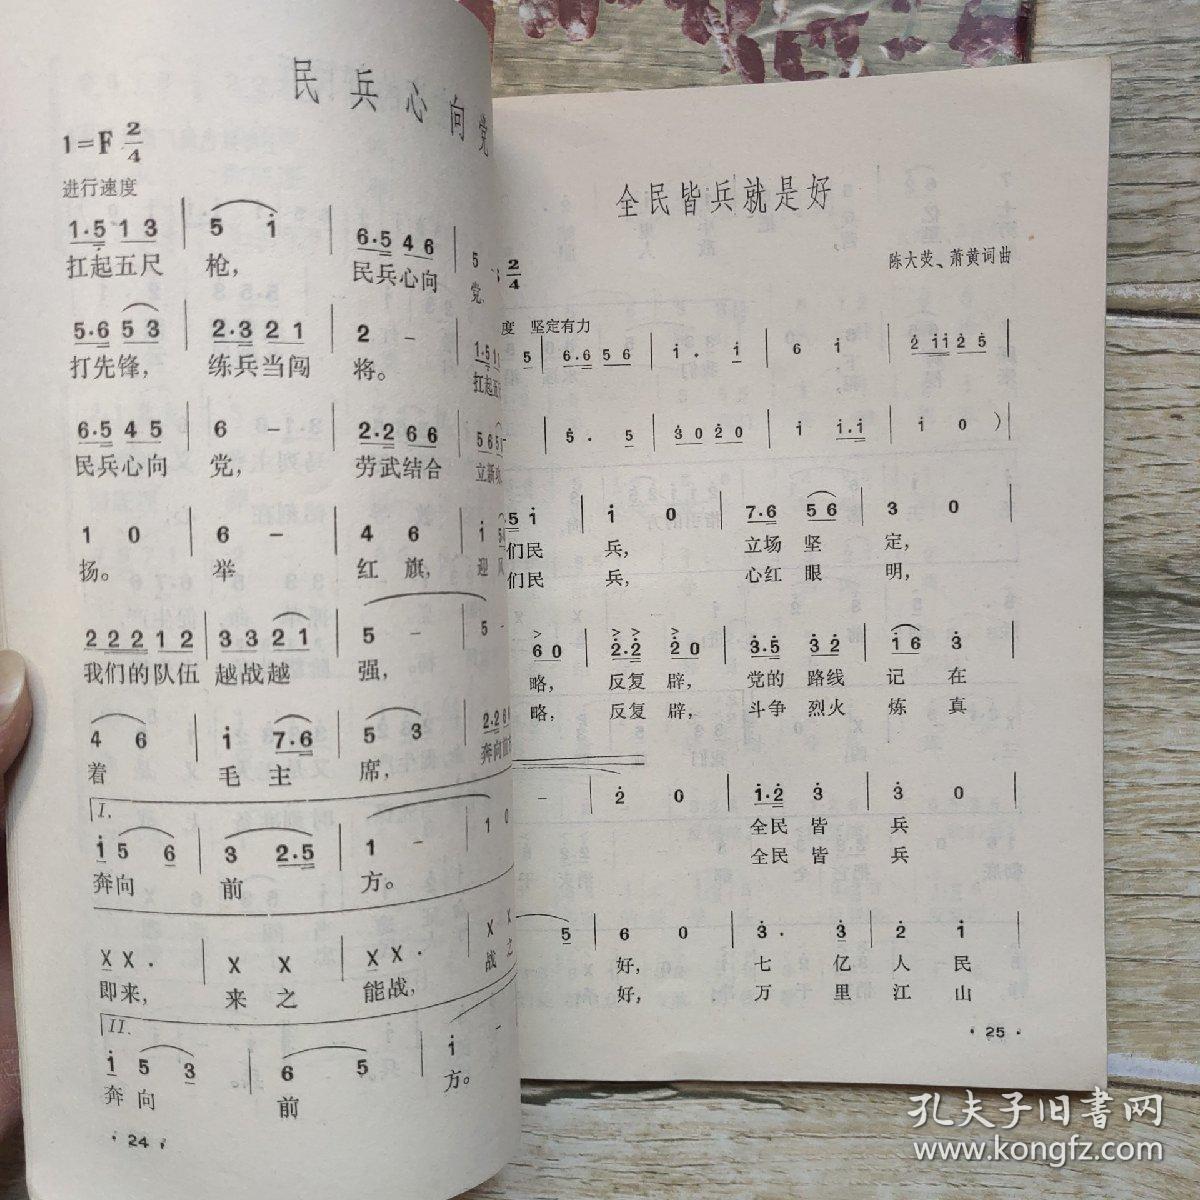 民兵心向党
1=F 2/4
进行速度
1·5 1 3 | 5 i | 6·5 4 6 | 5
扛起五尺 枪, 民兵心向 党,
5·6 5 3 | 2·3 2 1 | 2 - | 1·5 1
打先锋, 练兵当闯 将。 扛起五
6·5 4 5 | 6 - | 2·2 6 6 | 5 6 5
民兵心向 党, 劳武结合 立新
1 0 | 6 - | 4 6 | i 5
扬。 举 红旗, 迎风
2 2 2 1 2 | 3 3 2 1 | 5 - | 5 -
我们的队伍 越战越 强,
4 6 | i 7·6 | 5 3 | 2·2 6
着 毛主 席, 奔向
I.
i 5 6 | 3 2·5 | 1 - | 1 0
奔向 前 方。
X X · | X X | X X · | X X
即来, 来之 能战, 战之
II.
i 5 3 | 6 5 | i -
奔向 前 方。
· 24 ·
全民皆兵就是好
2/4
陈大荧、萧黄词曲
度 坚定有力
5 | 6·6 5 6 | i · i | 6 i | 2 i i 2 5 |
5 · 5 | 3 0 2 0 | i i·i | i 0 ) |
5 i | i 0 | 7·6 5 6 | 3 0 |
们民 兵, 立场坚 定,
们民 兵, 心红眼 明,
6 0 | 2·2 2 0 | 3·5 3 2 | i 6 3 |
略, 反复辟, 党的路线 记在
略, 反复辟, 斗争烈火 炼真
- | 2 0 | i·2 3 | 3 0 |
全民皆 兵
全民皆 兵
5 | 6 0 | 3 · 3 | 2 i |
好, 七亿 人民
好, 万里 江山
· 25 ·
孔夫子旧书网
www.kongfz.com